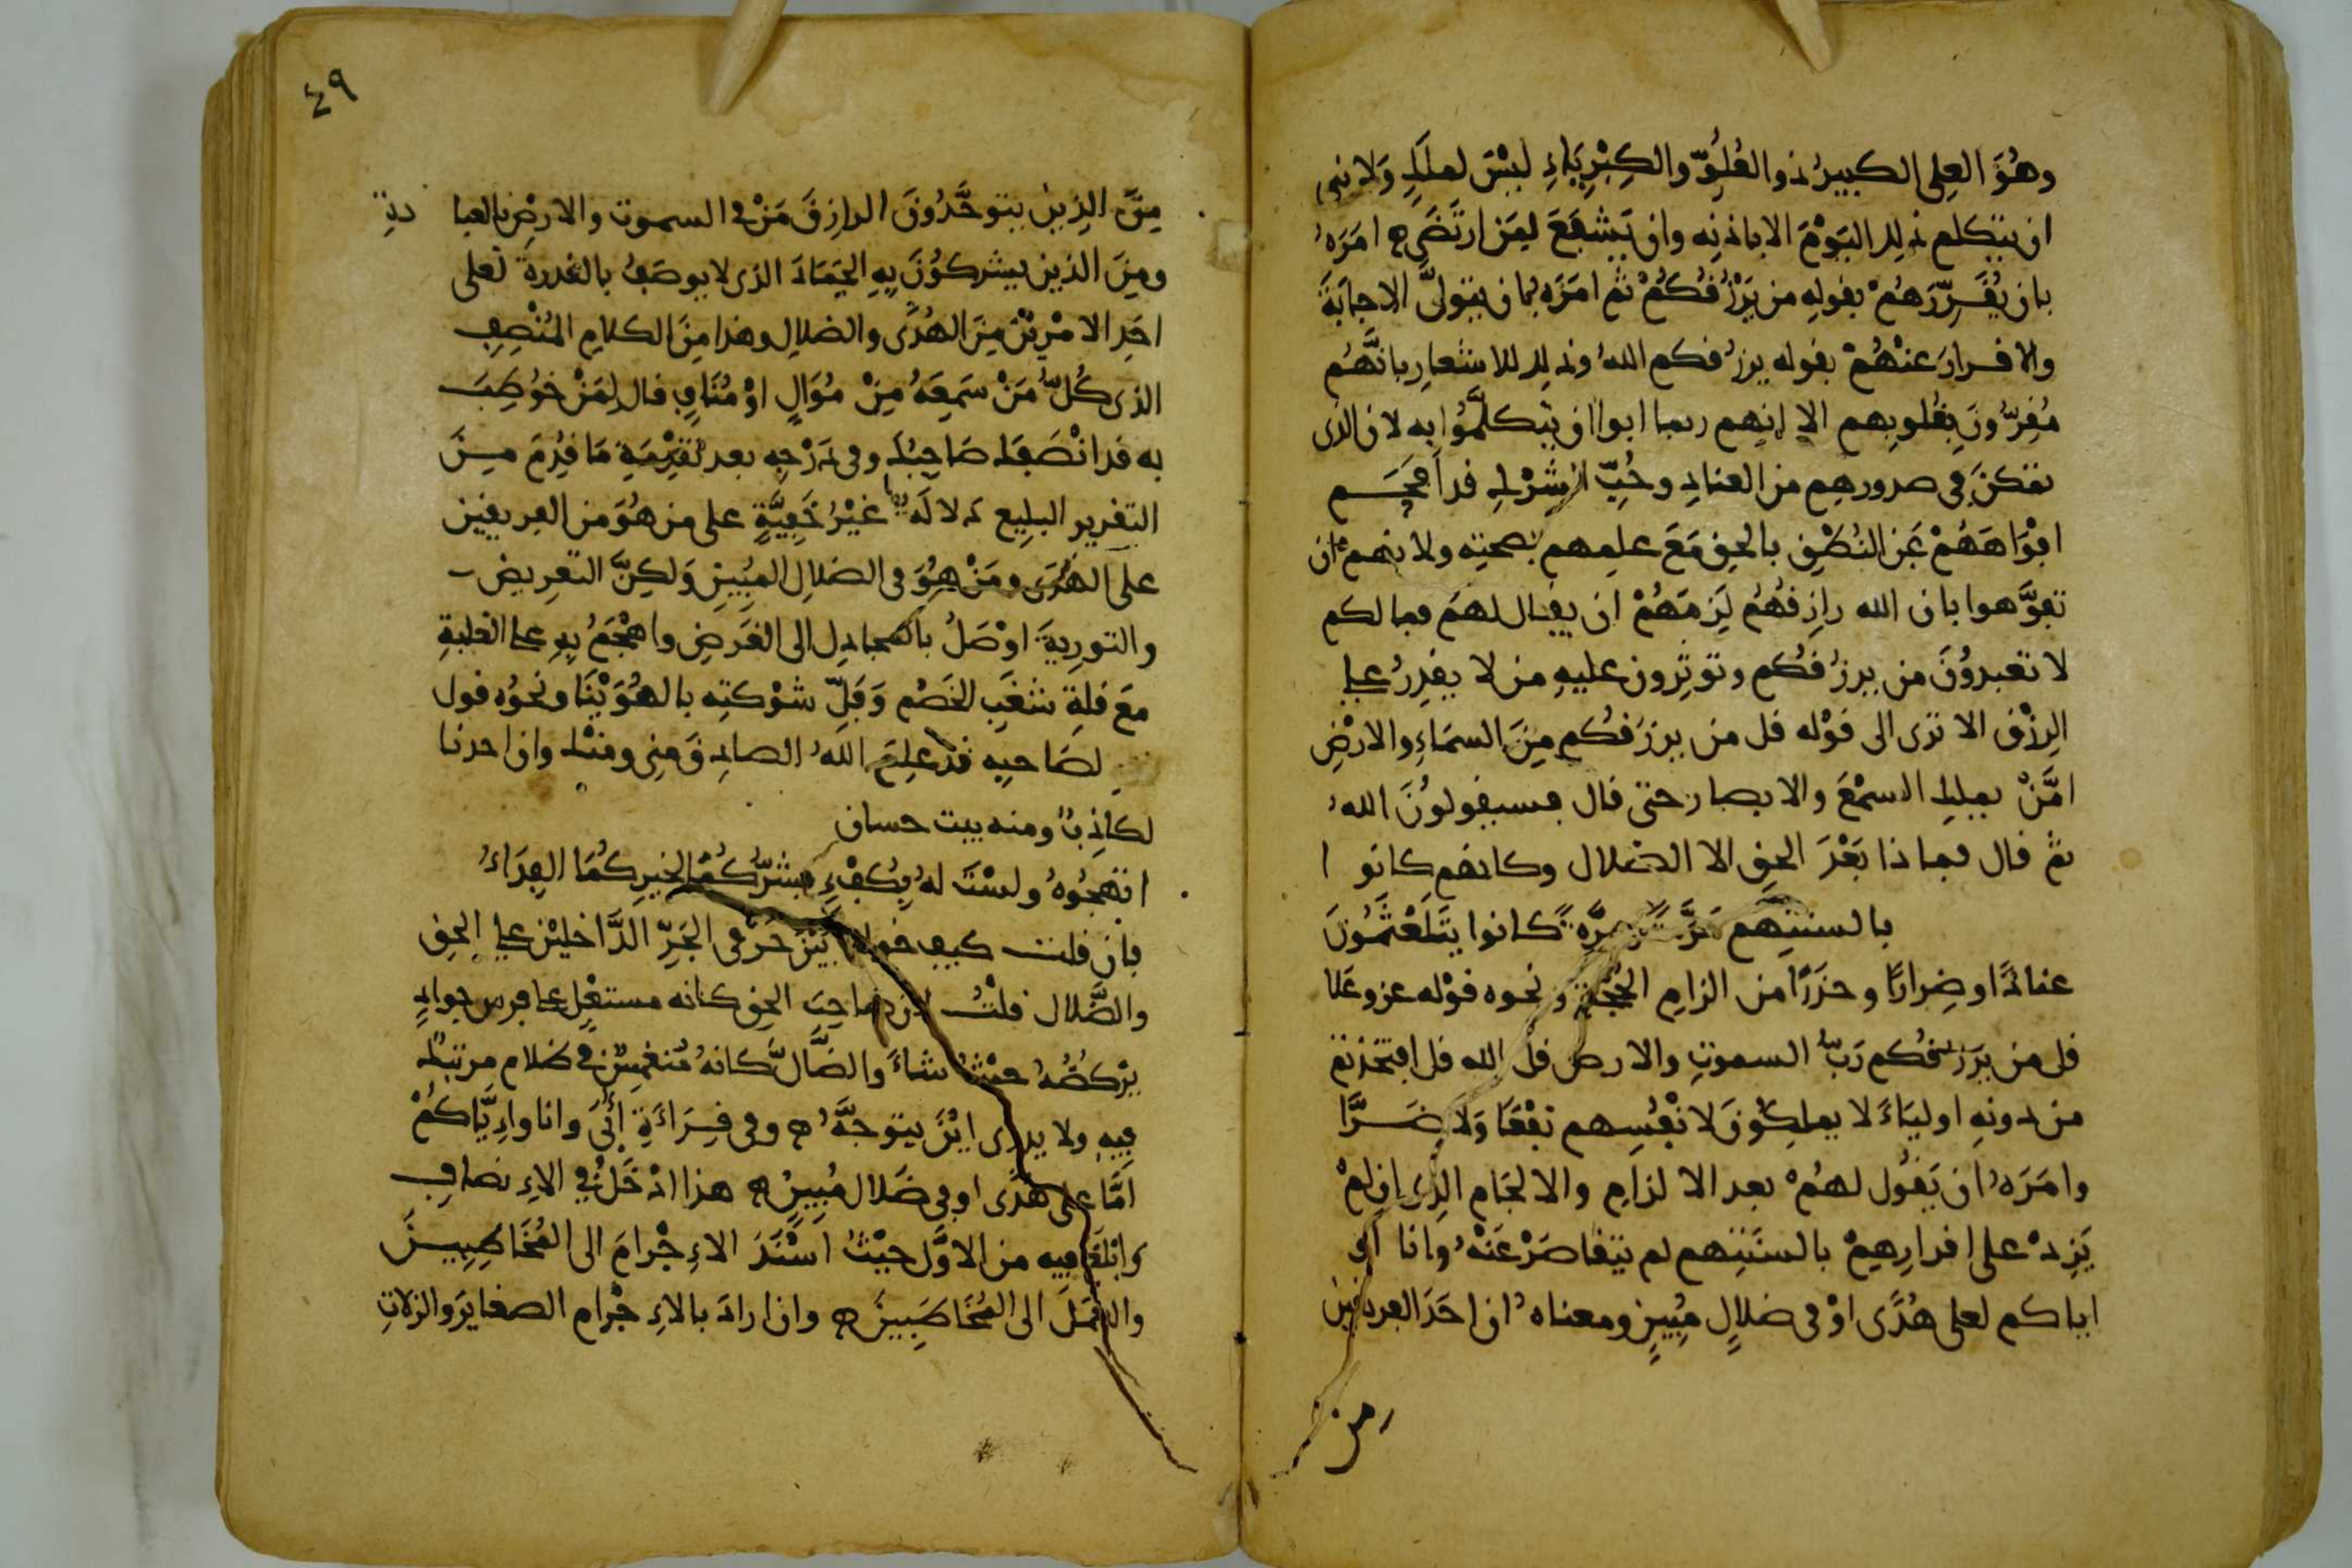 وهُوَ العلى الكبير ذو العُلُوّ والكِبْرِيَاءِ ليْسَ لملَكٍ وَلا نبى
ان يتكلم ذلك اليَوْمَ الا باذنِه وان يَشْفَعَ لِمَن ارتَضَى امَرَهُ
بان يُقَرِّرَهُمْ بقولِهِ من يَرْزُقُكُمْ ثم امَرَه بان يتولىَّ الاجابَةَ
والاقرارَ عنْهُمْ بقوله يرزُقكم اللهُ وذلك للاشعارِ بانَّهُم
مُقِرّونَ بقُلوبِهم الا انهم ربما ابوا ان يتكلَّمُوا به لان الذى
تمكنَ فى صدورهِم من العنادِ وحُبّ الشِرْكِ قد الجَم
افْوَاهَهُمْ عَن النُطْقِ بالحقِ مَعَ علمِهم بصحتِه ولانهم ان
تفَوَّهوا بان الله رازِقُهُم لَزِمَهُمْ ان يقال لهم فما لكم
لا تعبدوُنَ من يرزُقُكم وتوثِرون عليهِ من لا يقدِرُ على
الرِزْق الا ترى الى قوْله قل من يرزُقُكم مِنَ السمَاءِ والارْضِ
امَّنْ يملكِ السمْعَ والابصار حتى قال فسيقولوُنَ اللهُ
ثم قال فماذا بَعْدَ الحقِ الا الضلال وكانهم كانوا
بالسنتِهِم مَرَّةً ومرَّةً كانوا يتَلَعْثَمُونَ
عنادًا وضِرارًا وحذَرًا من الزامِ الحُجَّةِ ونحوه قوْله عز وعَلا
قل من يرَزُقكم رَبُّ السموتِ والارض قل الله قل افتخذتم
من دونِهِ اوليَاءَ لا يملكوُنَ لانْفُسِهم نفْعًا وَلَا ضَرًّا
وامَرَهُ ان يَقُول لهُمْ بعد الالزامِ والالجَامِ الذى ان لمْ
يَزِدْ على اقرارِهِمْ بالسنَتِهم لم يتقاصَرْ عَنْهُ وانا او
اياكم لعلى هُدًى اوْ فى ضلالٍ مُبِينٍ ومعناهُ ان احَدَ الفريقين
من
٤٩
مِنَ الذِين يتوحَّدُونَ الرازقَ مَنْ فى السموت والارضِ بالعبادةِ
ومِنَ الذين يشركوُنَ بِهِ الجَمَادَ الذى لا يوصَفُ بالقدرة لعلى
احَدِ الامْرَيْن مِنَ الهُدَى والضلالِ وهذا مِنَ الكلامِ المُنْصِفِ
الذى كُلُّ مَنْ سَمِعَهُ مِنْ مُوَالٍ اوْ مُنَافٍ قال لِمَنْ خوُطِبَ
به قد انْصَفَك صَاحِبُك وفى دَرْجِه بعد تقدِمَةِ مَا قُدِمَ مِنَ
التقرير البلِيغ دلالَةٌ غَيْرُ خَفِيَّةٍ على من هُوَ من الفريقين
على الهُدَى ومَنْ هُوَ فى الضلالِ المُبِينِ وَلكِنَّ التعرِيض
والتورِيةَ اوْصَلُ بالمجادِل الى الغَرضِ واهْجَمُ بِهِ على الغلبةِ
مَعَ قلةِ شغَبِ الخَصْم وَفَلِّ شوْكتِه بالهُوَيْنَا ونحوُه قول
لصَاحبِه قد علِمَ اللهُ الصادِقَ مِنى ومنْك وان احدنا
لكاذِبٌ ومنه بيت حسان
اتهجُوهُ ولسْتَ لهُ بِكُفْءٍ فشرُّكُمَا لخيرِكُمَا الفِدَاءُ
فان قلت كيف خولف بَيْنَ حَرْفى الجَرِّ الدَّاخليْن على الحقِ
والضَّلال قلْتُ لان صَاحِبَ الحق كانه مستعْلٍ على فرس جوادٍ
يرْكضُهُ حيْثُ شاءَ والضَّالُّ كانهُ مُنغمِسٌ فى ضلام مرتبك
فِيهِ ولا يدرى ايْنَ يتوجَّهُ وفى قِرَاءَةِ أُبَىّ وانا واِيَّاكُمْ
اِمَّا على هُدًى او فى ضَلال مُبِينٍ هذا ادْخَلُ فى الاِنصافِ
وابلَغُ فيه من الاوَّل حيْثُ اسْنَدَ الاِجْرامَ الى المُخَاطِبِينَ
والعَمَلَ الى المُخَاطَبِينَ وان ارادَ بالاِجْرام الصغايرَ والزلاتِ